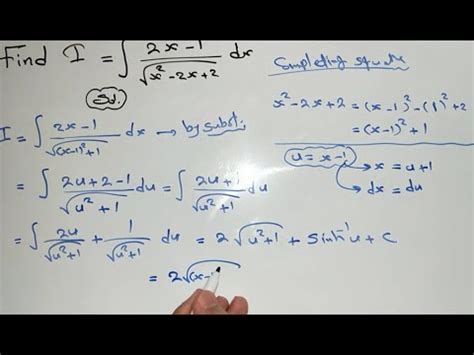 Find I = ∫ (2x-1)/√(x²-2x+2) dx
Sol.
Completing square
x²-2x+2 = (x-1)² - (1)² + 2
= (x-1)² + 1
u = x-1 → x = u+1
→ dx = du
I = ∫ (2x-1)/√((x-1)²+1) dx → by subst.
= ∫ (2u+2-1)/√(u²+1) du = ∫ (2u+1)/√(u²+1) du
= ∫ 2u/√(u²+1) + 1/√(u²+1) du = 2√(u²+1) + sinh⁻¹u + c
= 2√(x-1